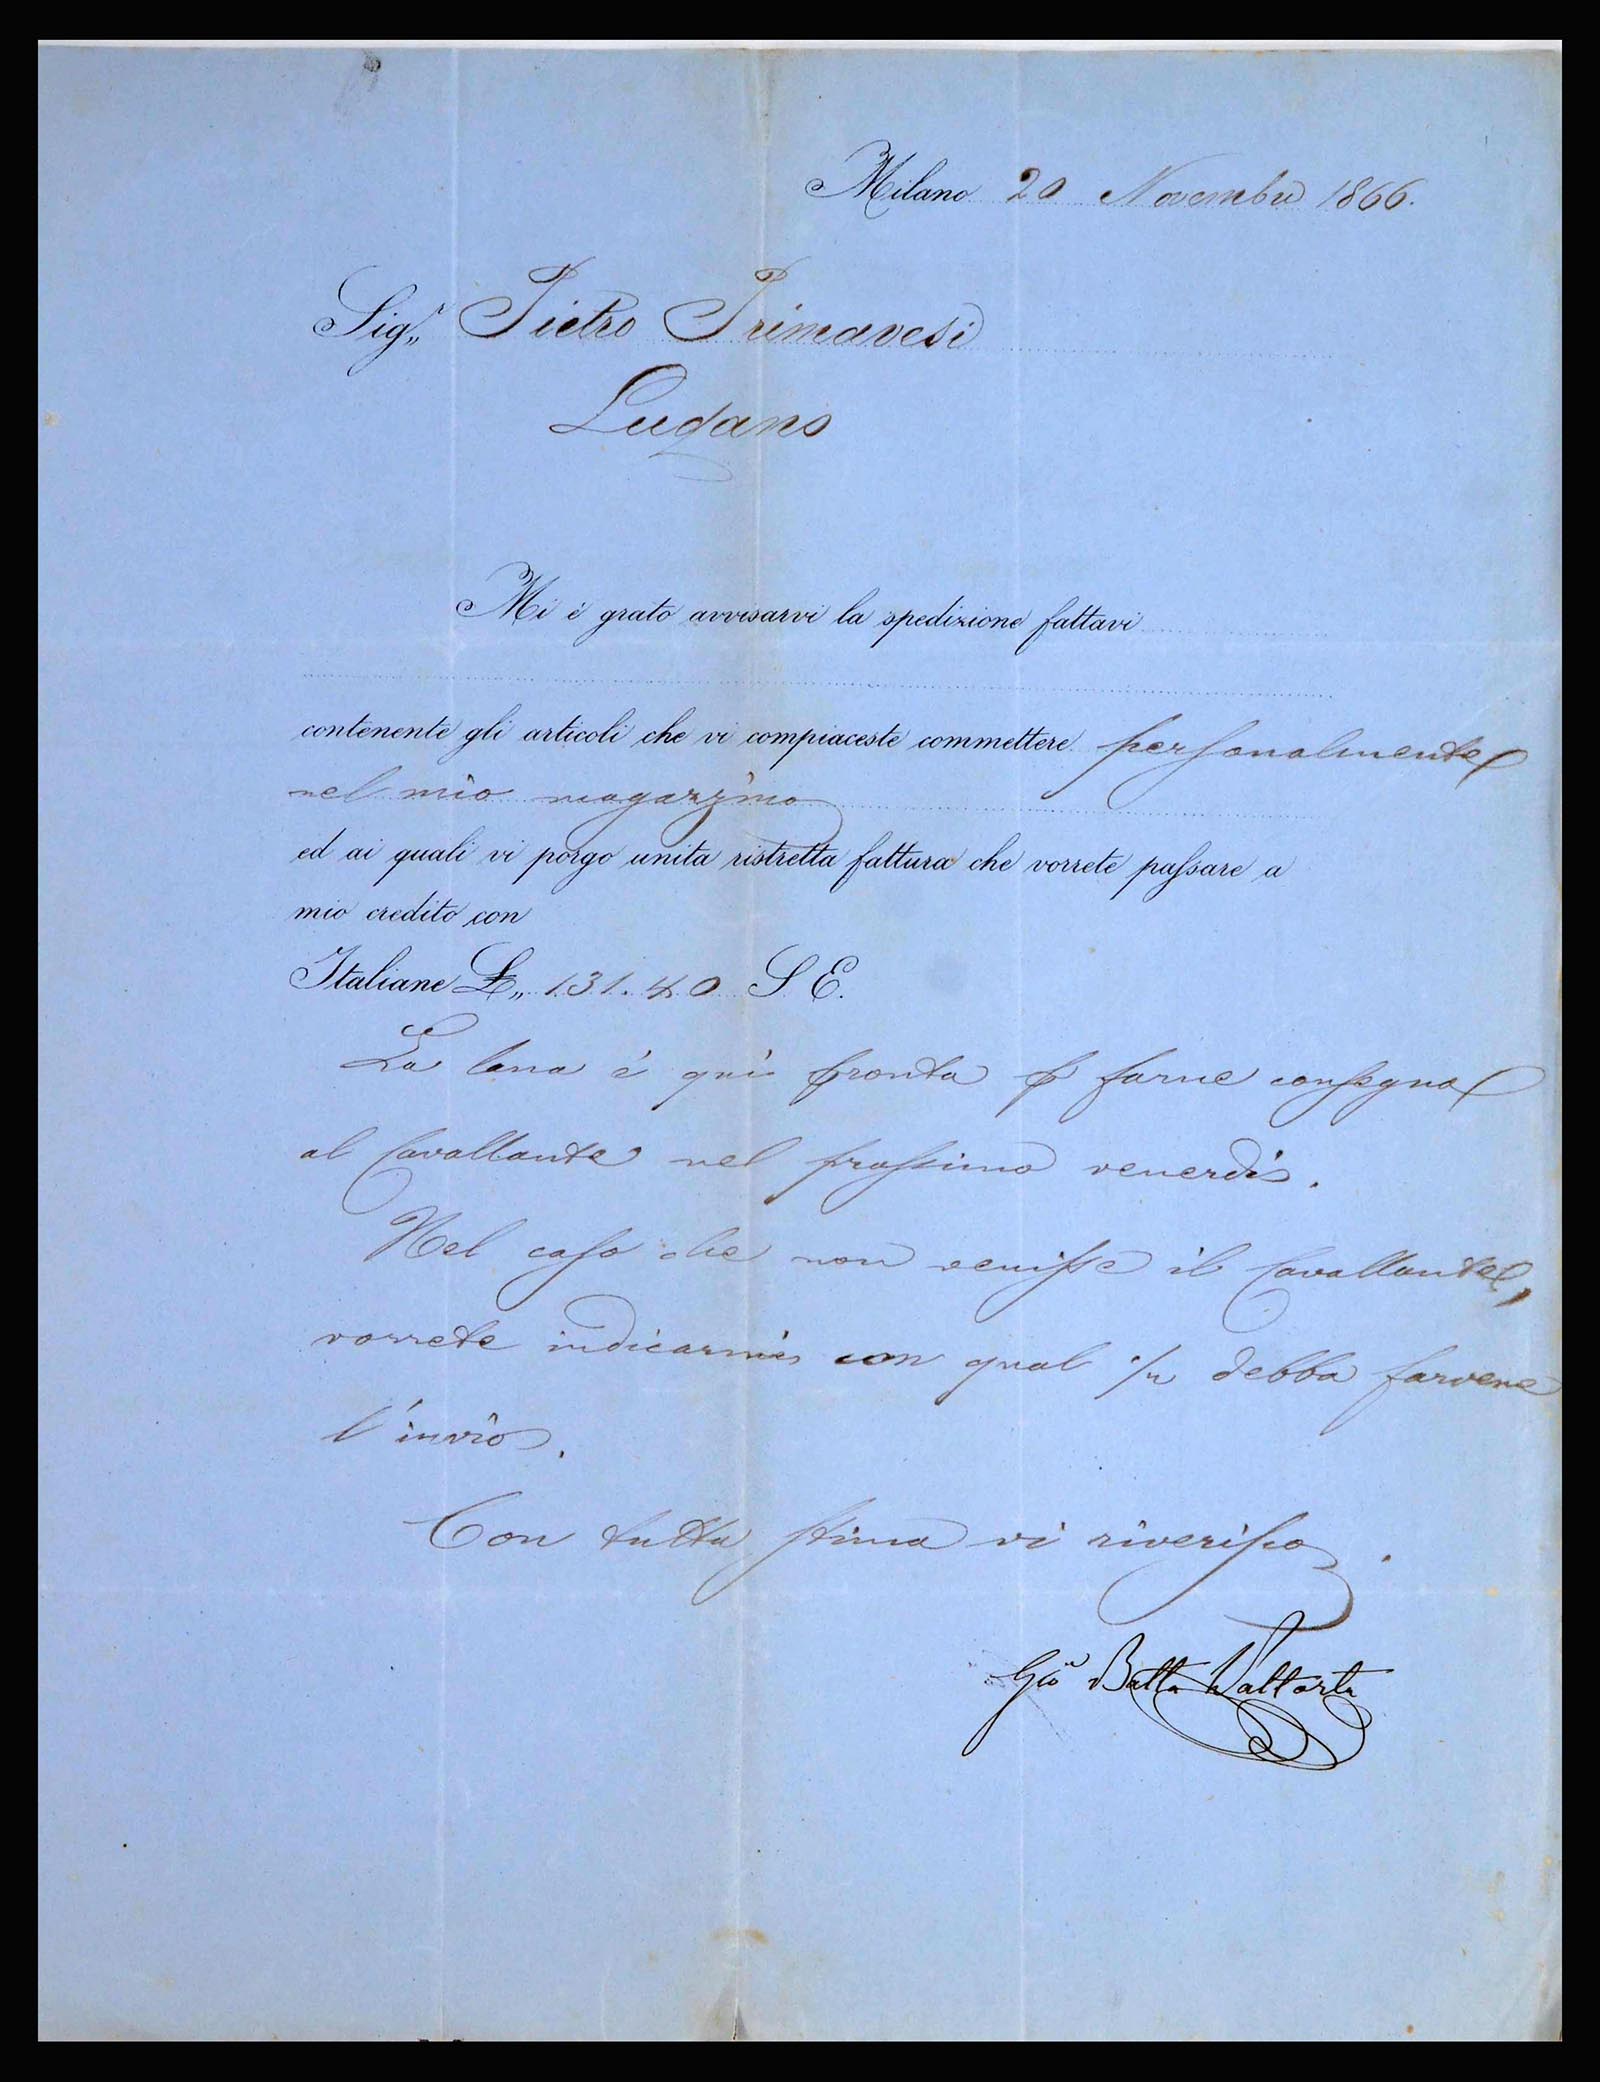 Milano 20 Novembre 1866.
Sig.r Pietro Primavesi
Lugano
Mi è grato avvisarvi la spedizione fattavi
contenente gli articoli che vi compiaceste commettere personalmente
nel mio magazzino
ed ai quali vi porgo unita ristretta fattura che vorrete passare a
mio credito con
Italiane L.,, 131.40 S E.
La lana è quì pronta p farne consegna
al Cavallante nel prossimo venerdì.
Nel caso che non venisse il Cavallante,
vorrete indicarmi con qual debba farvene
l'invio.
Con tutta stima vi riverisco.
Gio Batta Valtorta